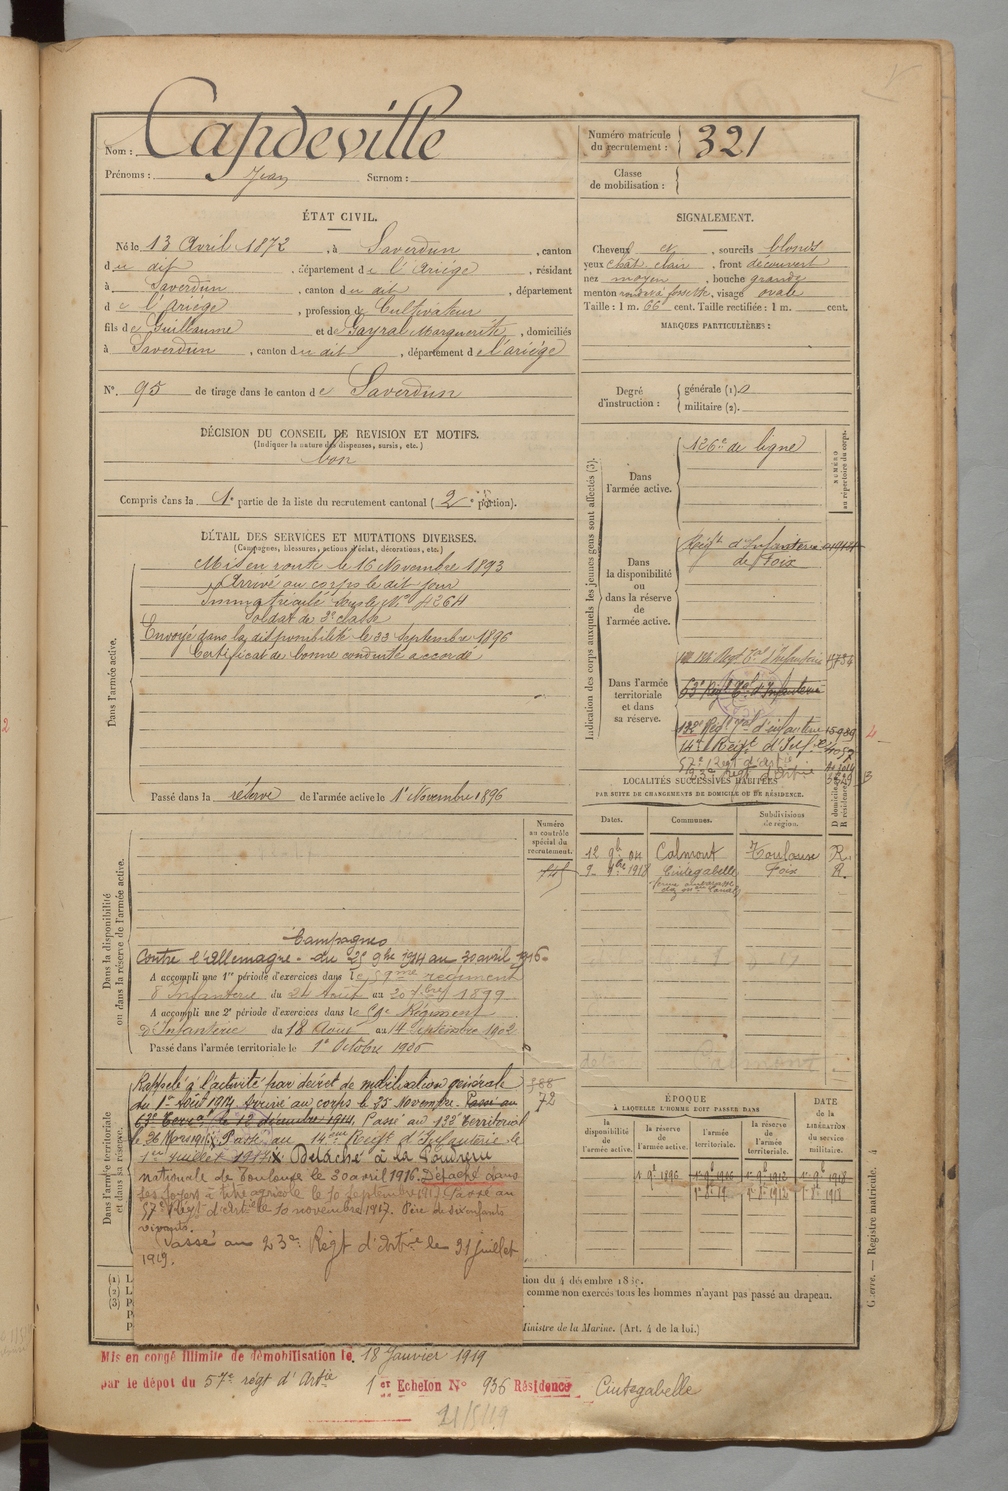 Nom : Capdeville
Prénoms : Jean Surnom :
Numéro matricule du recrutement : 321
Classe de mobilisation :
ÉTAT CIVIL.
Né le 13 Avril 1872, à Saverdun, canton
du dit, département de l'Ariège, résidant
à Saverdun, canton du dit, département
de l'Ariège, profession de Cultivateur
fils de Guillaume et de Sayral Marguerite, domiciliés
à Saverdun, canton du dit, département de l'ariège
N°. 95 de tirage dans le canton de Saverdun
SIGNALEMENT.
Cheveux et, sourcils blonds
yeux chât. clair, front découvert
nez moyen, bouche grande
menton rond à fossette, visage ovale
Taille : 1 m. 66 cent. Taille rectifiée : 1 m. cent.
MARQUES PARTICULIÈRES :
Degré d'instruction : générale (1). 2
militaire (2).
DÉCISION DU CONSEIL DE REVISION ET MOTIFS.
(Indiquer la nature des dispenses, sursis, etc.)
bon
Compris dans la 1e partie de la liste du recrutement cantonal (2e portion).
DÉTAIL DES SERVICES ET MUTATIONS DIVERSES.
(Campagnes, blessures, actions d'éclat, décorations, etc.)
Dans l'armée active.
Mis en route le 16 Novembre 1893
Arrivé au corps le dit jour
Immatriculé sous le N° 4264
Soldat de 2e classe
Envoyé dans la disponibilité le 22 Septembre 1896
Certificat de bonne conduite accordé
Passé dans la réserve de l'armée active le 1er Novembre 1896
Indication des corps auxquels les jeunes gens sont affectés (3).
NUMÉRO au répertoire du corps.
Dans l'armée active.
126e de ligne
Dans la disponibilité ou dans la réserve de l'armée active.
Régt d'Infanterie
de Foix
Dans l'armée territoriale et dans sa réserve.
63e Régt Tal d'Infanterie
132e Régt Tal d'infanterie 15989
14e Régt d'Inf.ie
57e Régt d'Art.ie
LOCALITÉS SUCCESSIVES HABITÉES
PAR SUITE DE CHANGEMENTS DE DOMICILE OU DE RÉSIDENCE.
Dates. Communes. Subdivisions de région. D domicile. R résidence.
Calmont Toulouse R.
1918 Cintegabelle Foix R.
Numéro au contrôle spécial du recrutement.
Dans la disponibilité ou dans la réserve de l'armée active.
Campagnes
Contre l'Allemagne - du 25 9bre 1914 au 30 avril 1916-
A accompli une 1re période d'exercices dans le 59me régiment
d'Infanterie du 24 Août au 20 7bre 1899
A accompli une 2e période d'exercices dans le 59e Régiment
D'Infanterie du 18 Août au 14 Septembre 1902
Passé dans l'armée territoriale le 1er Octobre 1906
Dans l'armée territoriale et dans sa réserve.
Rappelé à l'activité par décret de mobilisation générale
du 1er Août 1914 Arrivé au corps le 25 Novembre. Passé au
63e Terral le 12 décembre 1914. Passé au 132e Territorial
le 26 Mars 1915. Passé au 14me Régt d'Infanterie le
1er Juillet 1917. Détaché à la Poudrerie
nationale de Toulouse le 30 avril 1916. Détaché dans
ses foyers à titre agricole le 10 septembre 1917. Passé au
57e Régt d'Art.ie le 10 novembre 1917. Père de six enfants
vivants.
Passé au 23e Régt d'Art.ie le 31 juillet
1919.
588
72
ÉPOQUE
À LAQUELLE L'HOMME DOIT PASSER DANS
la disponibilité de l'armée active. la réserve de l'armée active. l'armée territoriale. la réserve de l'armée territoriale. DATE de la LIBÉRATION du service militaire.
(1) L
(2) L
(3) P
tion du 4 décembre 18
comme non exercés tous les hommes n'ayant pas passé au drapeau.
Ministre de la Marine. (Art. 4 de la loi.)
Guerre. — Registre matricule. 4
Mis en congé illimité de démobilisation le 18 Janvier 1919
par le dépôt du 57e régt d'Art.ie 1er Echelon N° 936 Résidence Cintegabelle
21/5/19